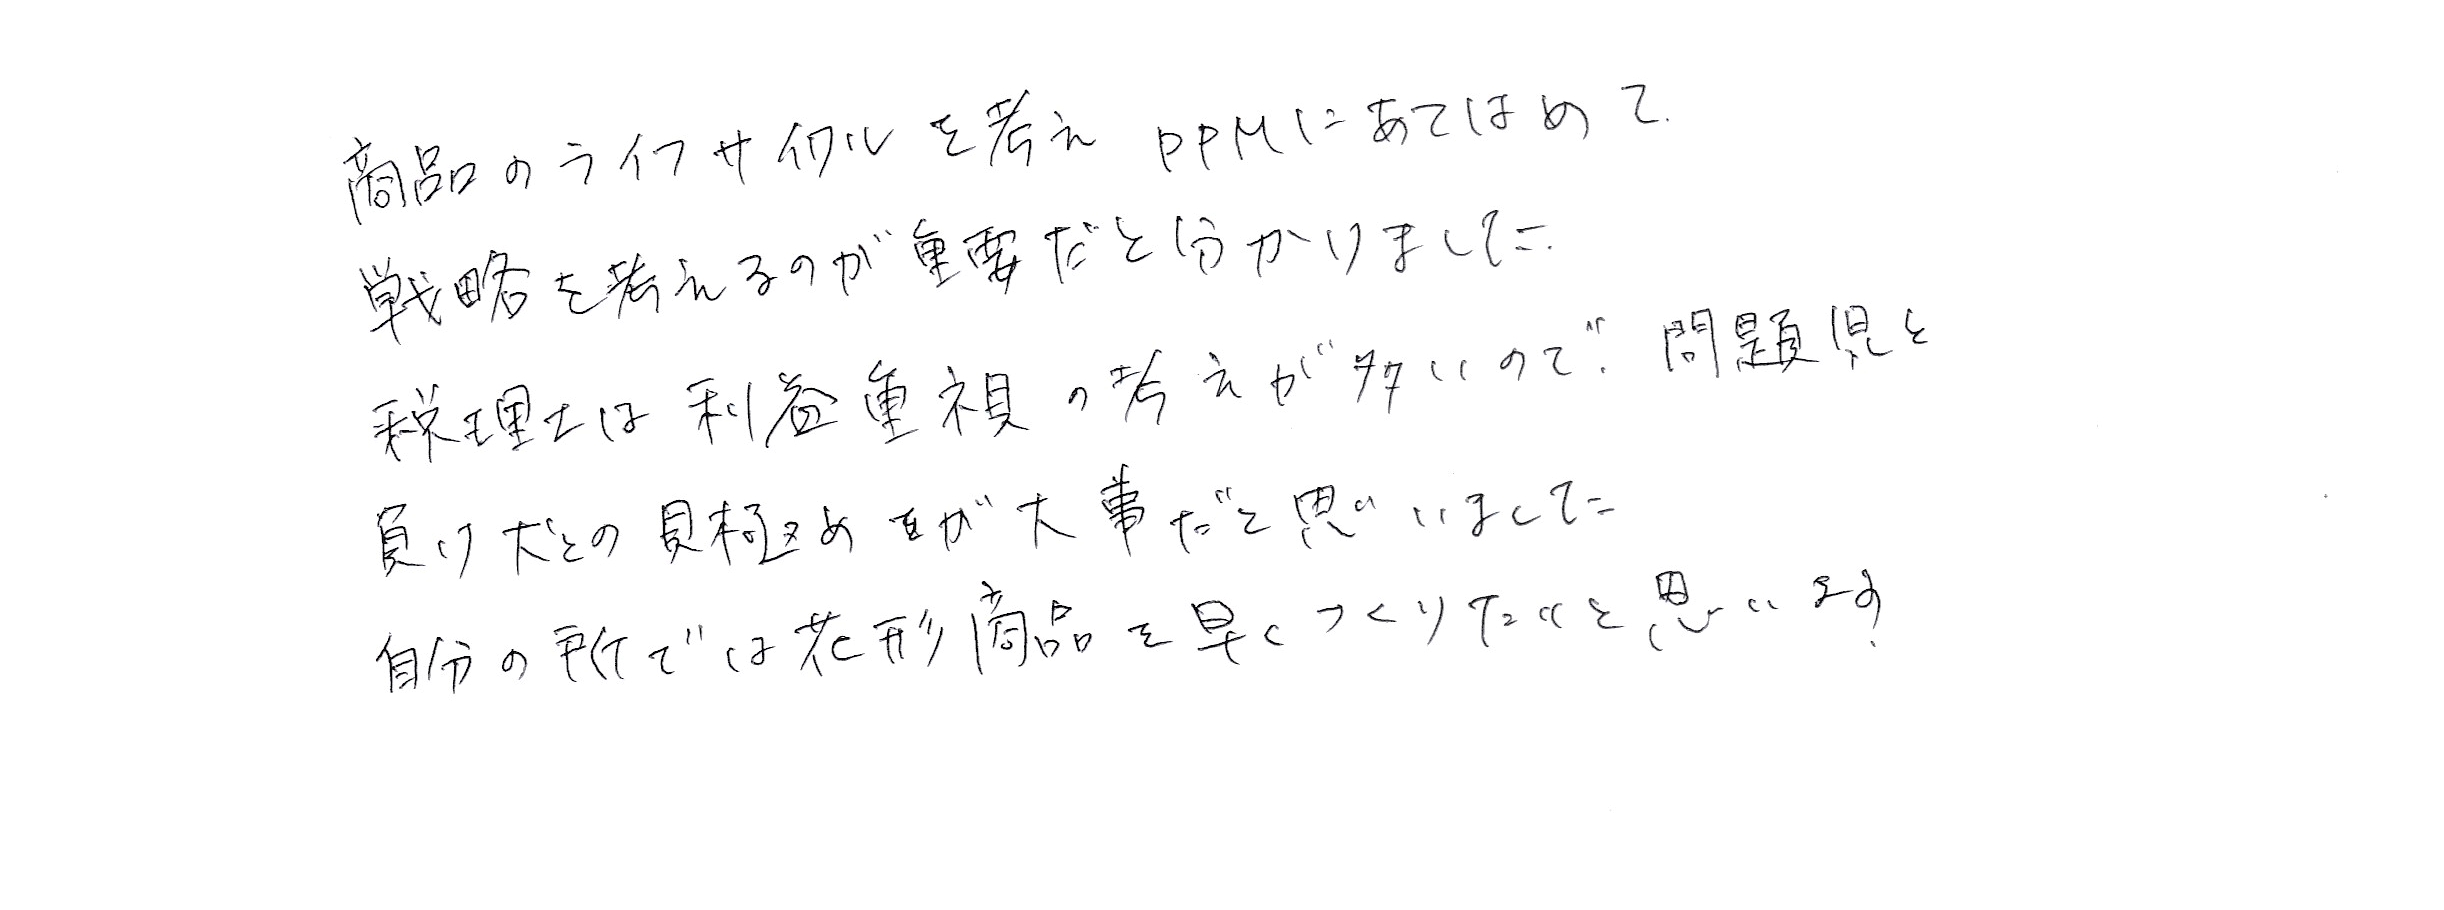 商品のライフサイクルを考え PPMにあてはめて
戦略を考えるのが重要だと分かりました.
税理士は利益重視の考えが多いので. 問題児と
負け犬との見極めをが大事だと思いいました
自分の所では花形商品を早くつくりたいと思います